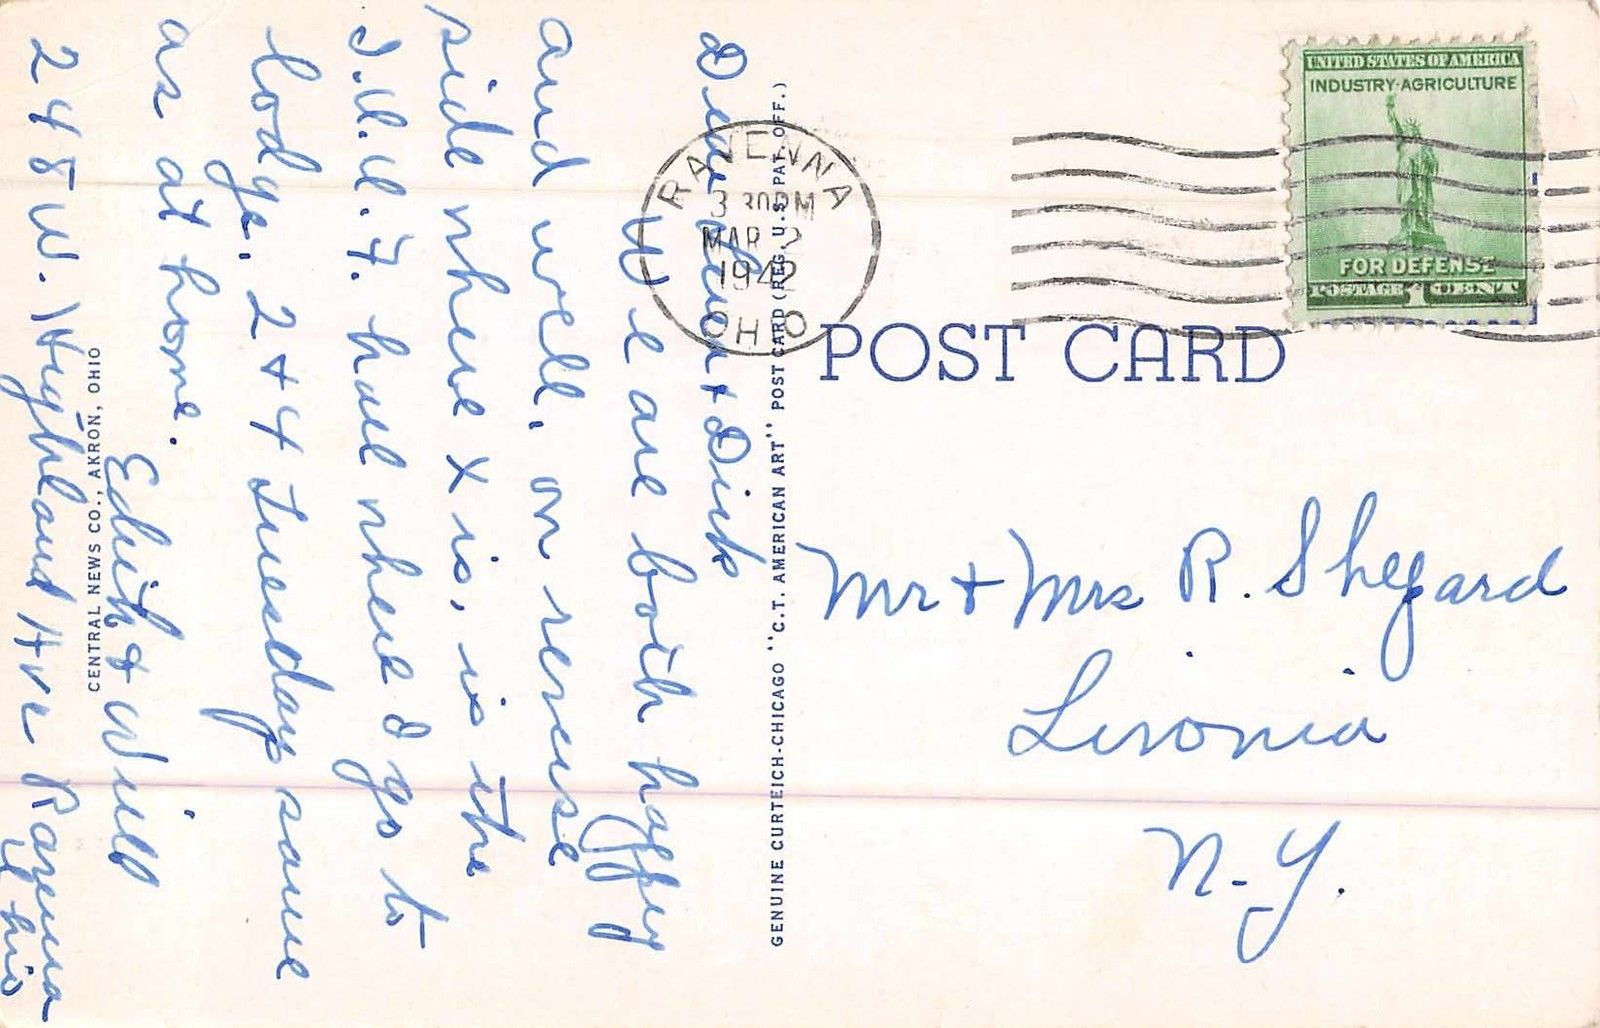 Dear & Dick
We are both happy
and well. on reverse
side where x is, is the
I.O.O.F. hall where I go to
lodge. 2 & 4 Tuesday same
as at home.
Edith & Will
248 W. Highland Ave Ravenna
Ohio
CENTRAL NEWS CO., AKRON, OHIO
GENUINE CURTEICH-CHICAGO "C.T. AMERICAN ART" POST CARD (REG. U.S. PAT. OFF.)
RAVENNA
3 30PM
MAR 2
1942
OHIO
UNITED STATES OF AMERICA
INDUSTRY·AGRICULTURE
FOR DEFENSE
POSTAGE 1 CENT
POST CARD
Mr & Mrs R. Shepard
Livonia
N.Y.